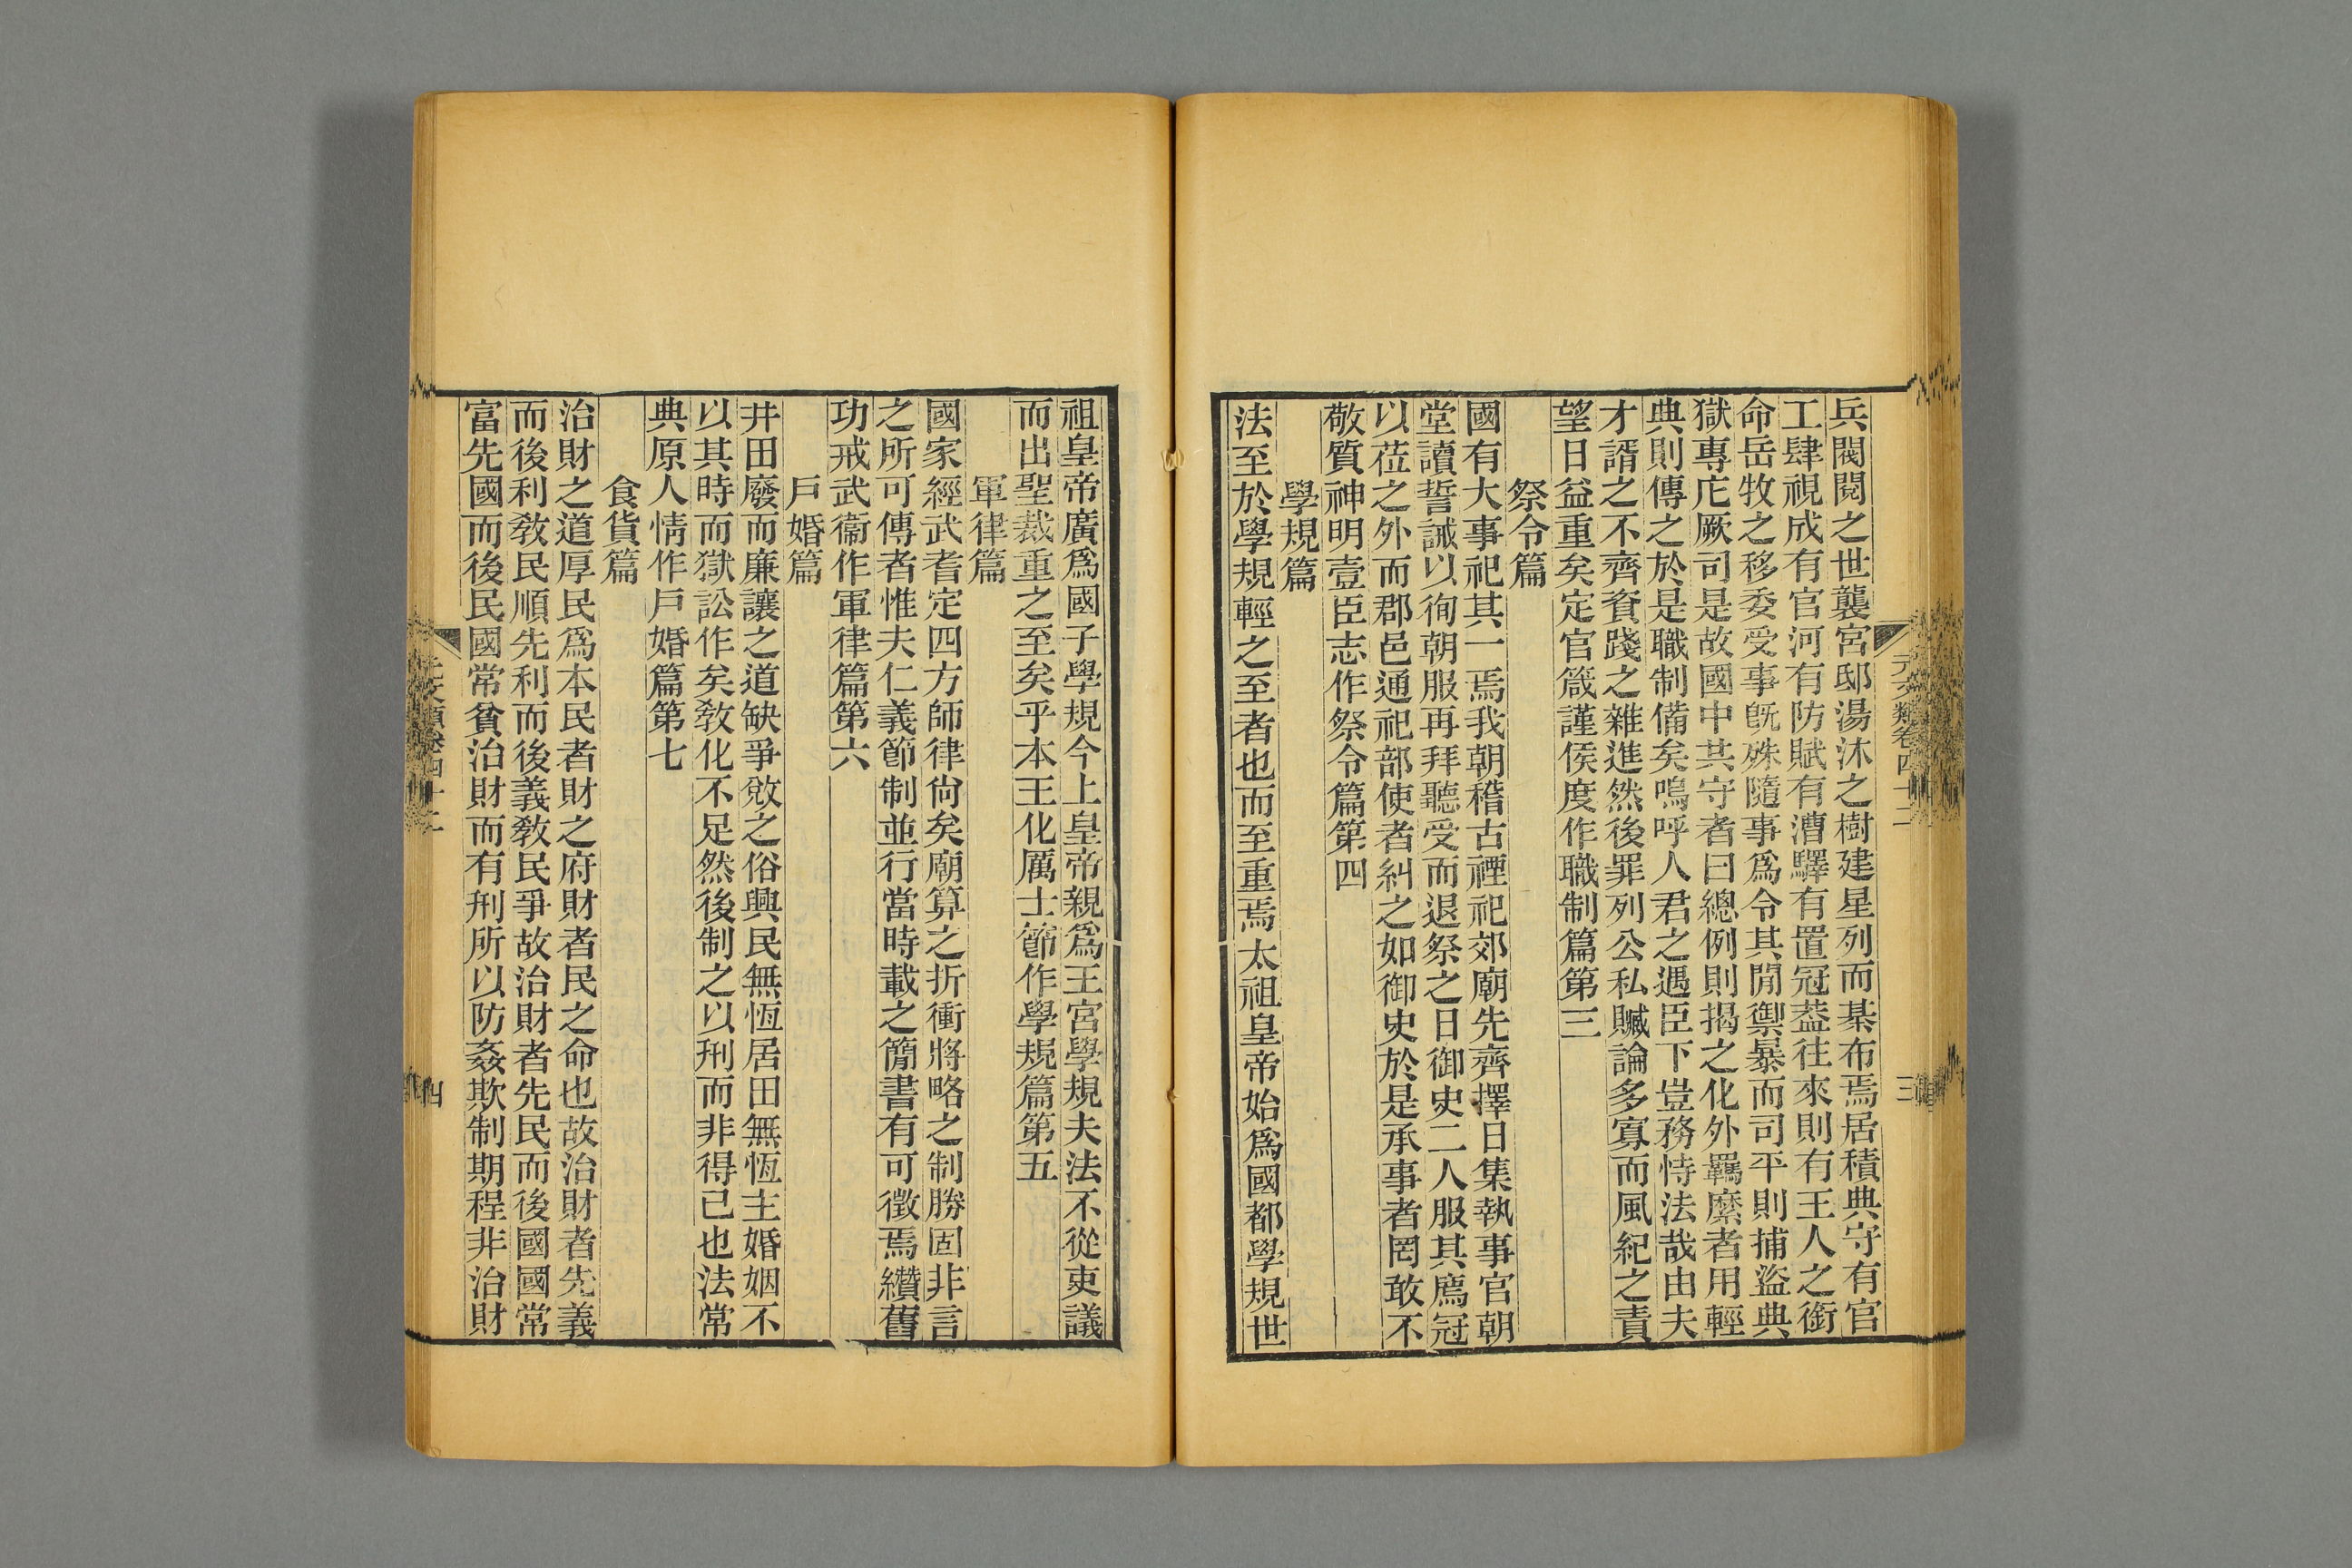 兵閥閱之世襲宮邸湯沐之樹建星列而棊布焉居積典守有官
工肆視成有官河有防賦有漕驛有置冠葢往來則有王人之銜
命岳牧之移委受事旣殊隨事爲令其閒禦暴而司平則捕盜典
獄專庀厥司是故國中共守者曰總例則揭之化外羈縻者用輕
典則傳之於是職制備矣嗚呼人君之遇臣下豈務恃法哉由夫
才諝之不齊資踐之雜進然後罪列公私贓論多寡而風紀之責
望日益重矣定官箴謹侯度作職制篇第三
祭令篇
國有大事祀其一焉我朝稽古禋祀郊廟先齊擇日集執事官朝
堂讀誓誡以徇朝服再拜聽受而退祭之日御史二人服其廌冠
以莅之外而郡邑通祀部使者糾之如御史於是承事者罔敢不
敬質神明壹臣志作祭令篇第四
學規篇
法至於學規輕之至者也而至重焉太祖皇帝始爲國都學規世
元文類卷四十二
三
祖皇帝廣爲國子學規今上皇帝親爲王宮學規夫法不從吏議
而出聖裁重之至矣乎本王化厲士節作學規篇第五
軍律篇
國家經武耆定四方師律尙矣廟算之折衝將略之制勝固非言
之所可傳者惟夫仁義節制並行當時載之簡書有可徵焉纘舊
功戒武衞作軍律篇第六
戶婚篇
井田廢而廉讓之道缺爭敓之俗興民無恆居田無恆主婚姻不
以其時而獄訟作矣敎化不足然後制之以刑而非得已也法常
典原人情作戶婚篇第七
食貨篇
治財之道厚民爲本民者財之府財者民之命也故治財者先義
而後利敎民順先利而後義敎民爭故治財者先民而後國國常
富先國而後民國常貧治財而有刑所以防姦欺制期程非治財
元文類卷四十二
四